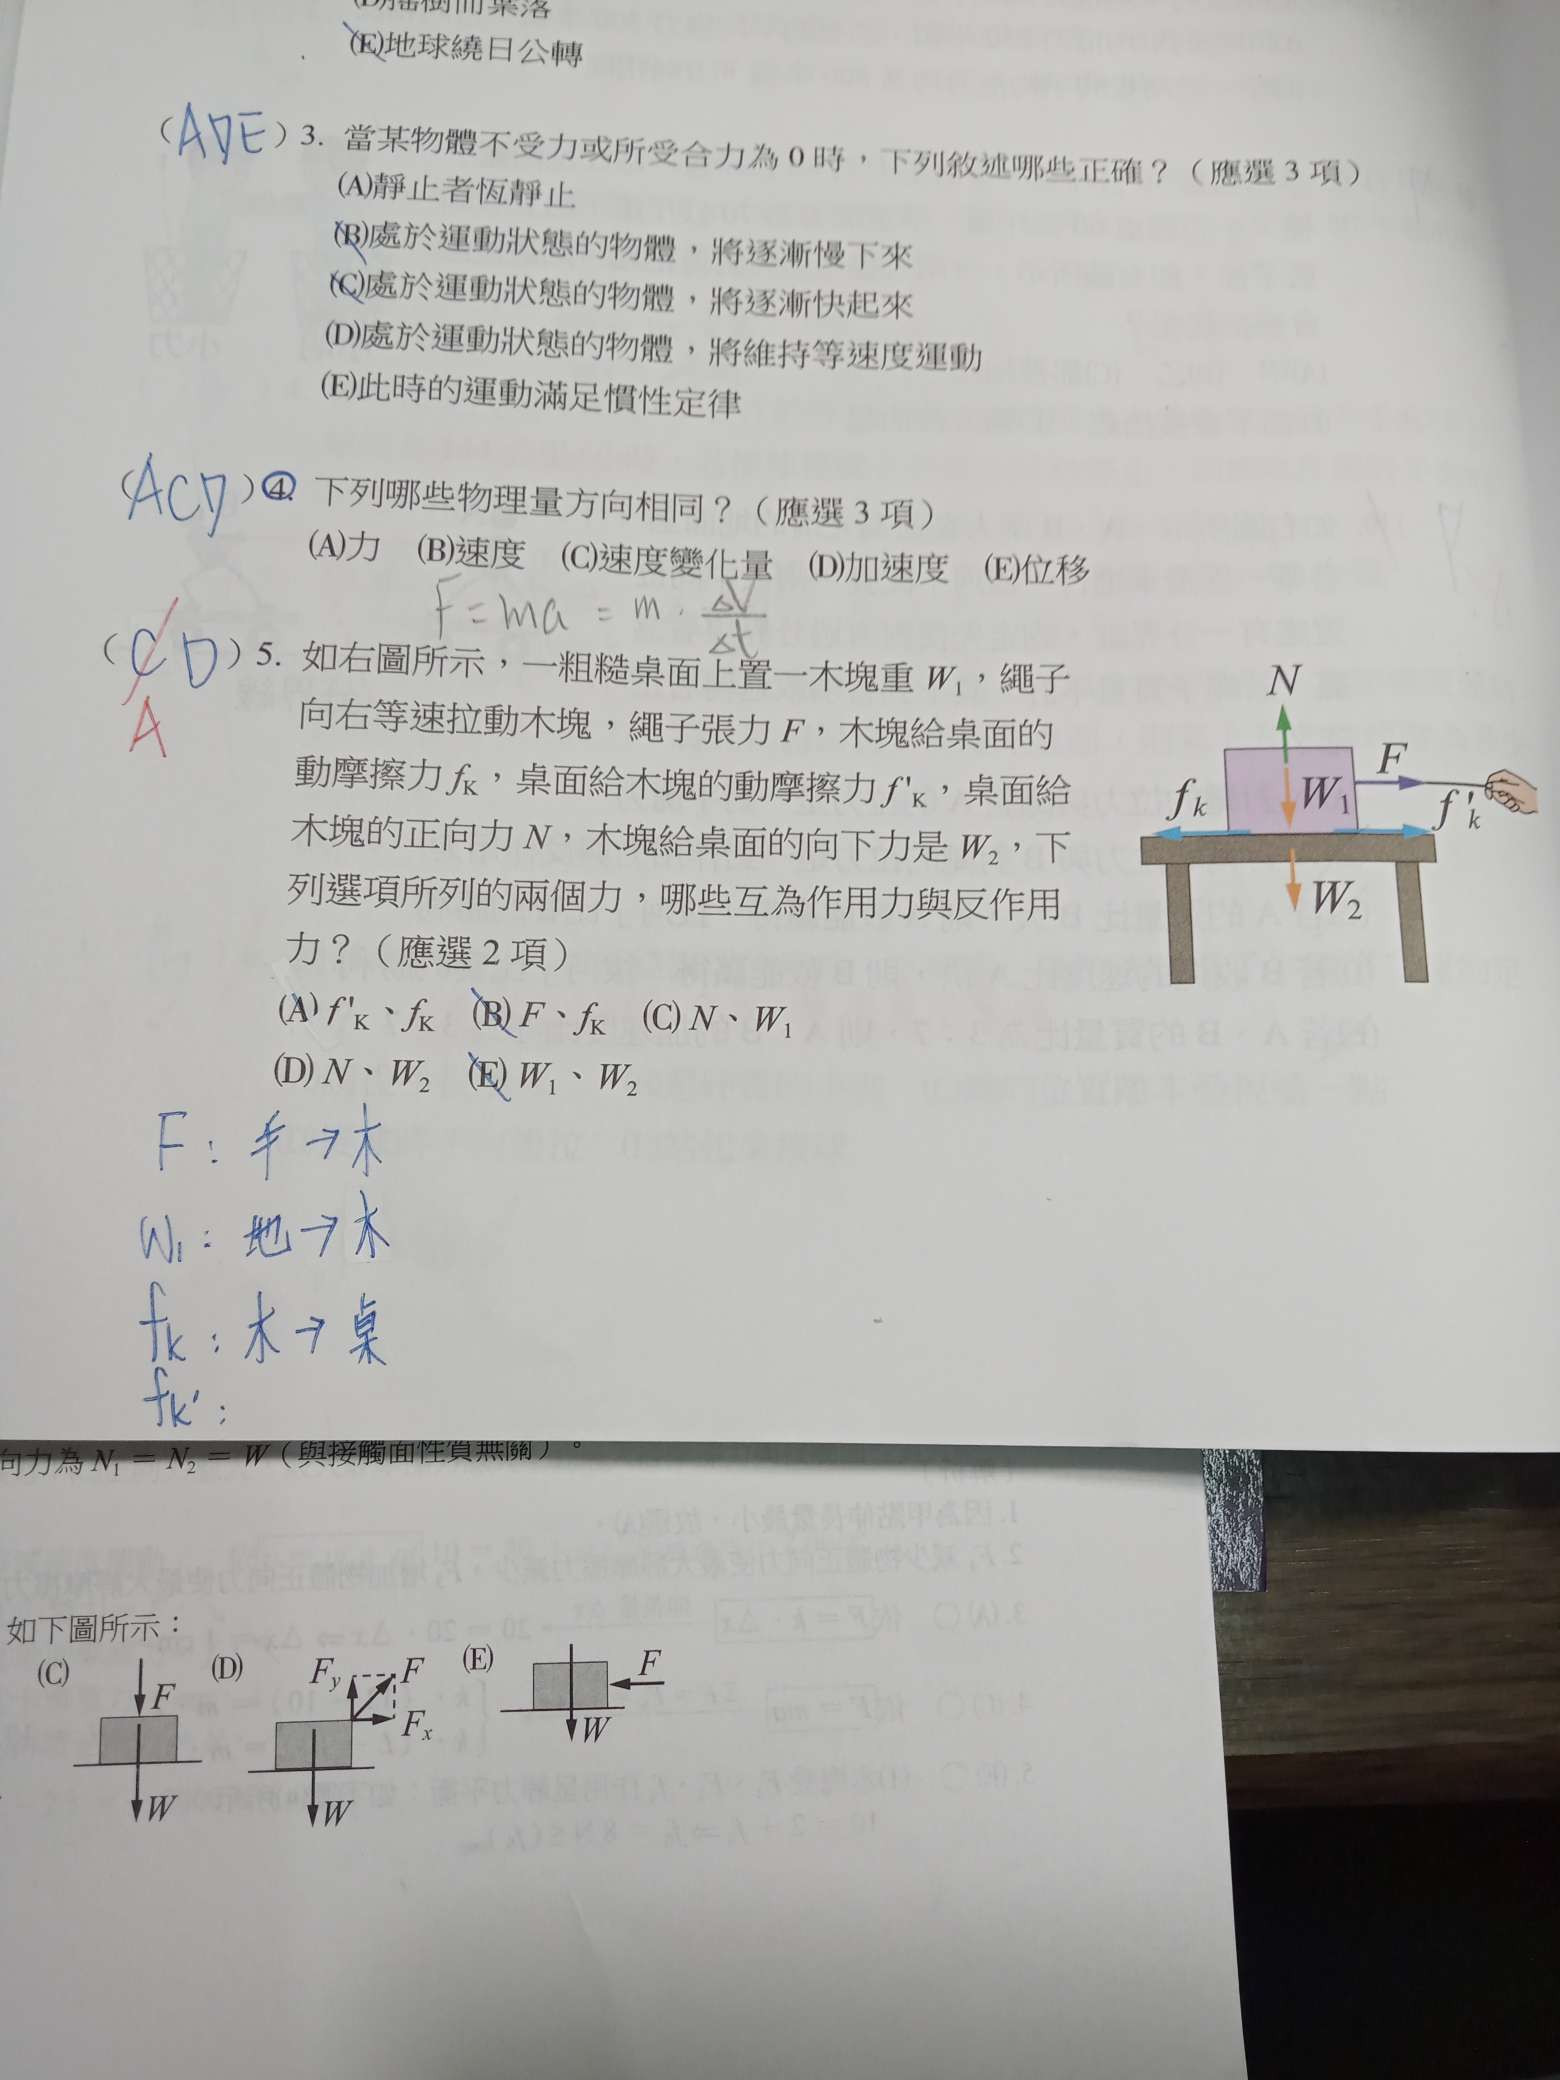 (D)搖樹而葉落
(E)地球繞日公轉
(ADE) 3. 當某物體不受力或所受合力為 0 時，下列敘述哪些正確？（應選 3 項）
(A)靜止者恆靜止
(B)處於運動狀態的物體，將逐漸慢下來
(C)處於運動狀態的物體，將逐漸快起來
(D)處於運動狀態的物體，將維持等速度運動
(E)此時的運動滿足慣性定律
(ACD) 4. 下列哪些物理量方向相同？（應選 3 項）
(A)力 (B)速度 (C)速度變化量 (D)加速度 (E)位移
F = ma = m · ΔV/Δt
(CD) 5. 如右圖所示，一粗糙桌面上置一木塊重 W₁，繩子
A
向右等速拉動木塊，繩子張力 F，木塊給桌面的
動摩擦力 fK，桌面給木塊的動摩擦力 f'K，桌面給
木塊的正向力 N，木塊給桌面的向下力是 W₂，下
列選項所列的兩個力，哪些互為作用力與反作用
力？（應選 2 項）
(A) f'K、fK (B) F、fK (C) N、W₁
(D) N、W₂ (E) W₁、W₂
N
F
fk
W₁
f'k
W₂
F：手→木
W₁：地→木
fk：木→桌
fk'：
向力為 N₁ = N₂ = W（與接觸面性質無關）。
如下圖所示：
(C) F W
(D) Fy F Fx W
(E) F W